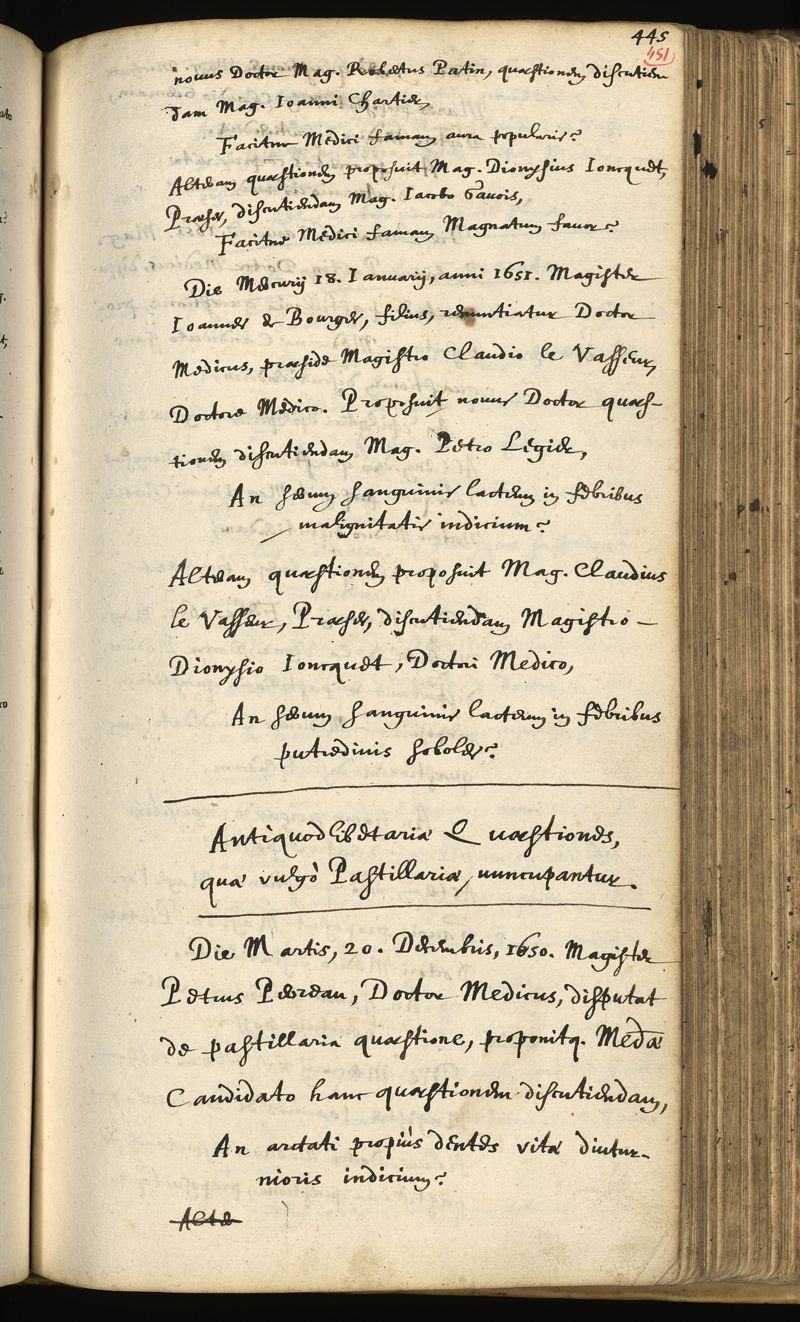 445
451
novus Doctor Mag. Robertus Patin, quæstionem discutien
dam Mag. Ioanni Chartier,
Facitne Medici famam aura popularis?
Alteram quæstionem proposuit Mag. Dionysius Ioncquet,
Præses, discutiendam Mag. Iacobo Gavois,
Facitne Medici famam Magnatum favor?
Die Mercurij 18. Ianuarij, anni 1651. Magister
Ioannes de Bourges, filius, renuntiatur Doctor
Medicus, præside Magistro Claudio le Vasseur,
Doctore Medico. Proposuit novus Doctor quæs-
tionem discutiendam Mag. Petro Legier,
An serum sanguinis lacteum in febribus
malignitatis indicium?
Alteram quæstionem proposuit Mag. Claudius
le Vasseur, Præses, discutiendam Magistro –
Dionysio Ioncquet, Doctori Medico,
An serum sanguinis lacteum in febribus
putredinis soboles?
Antiquodlibetariæ Quæstiones,
quæ vulgò Pastillariæ, nuncupantur.
Die Martis, 20. Decembris, 1650. Magister
Petrus Perreau, Doctor Medicus, disputat
de pastillaria quæstione, proponitq. Meda
Candidato hanc quæstionem discutiendam,
An arctati propiùs dentes vitæ diutur-
nioris indicium?
Alte